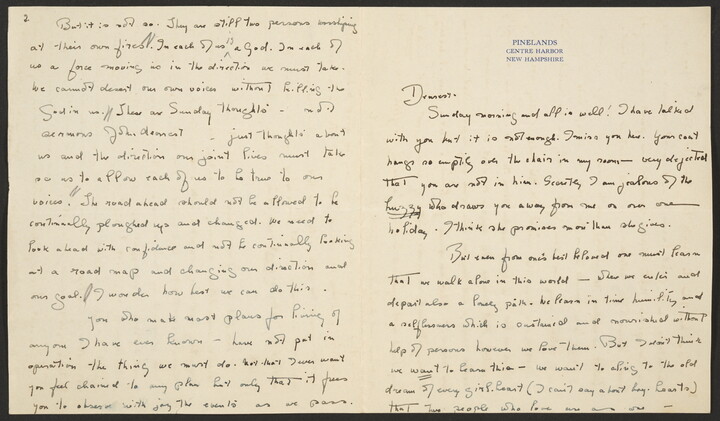 PINELANDS
CENTRE HARBOR
NEW HAMPSHIRE
Dearest-
Sunday morning and all is well! I have talked
with you but it is not enough. I miss you here. Your coat
hangs so emptily over the chair in my room — very dejected
that you are not in him. Secretly I am jealous of the
who draws you away from me on our one
holiday. I think she promises more than she gives.
But even from one's best beloved one must learn
that we walk alone in this world — when we enter and
depart also a lonely path. We learn in time humility and
a selflessness which is sustained and nourished without
help of persons however we love them. But I don't think
we want to learn this — we want to cling to the old
dream of every girl-heart (I can't say about boy-hearts)
that two people who love are as one —
2.
But it is not so. They are still two persons worshiping
at their own fires. // In each of us is a God. In each of
us a force moving us in the direction we must take.
We cannot desert our own voices without killing the
God in us. // These are Sunday thoughts - not
sermons dearest - just thoughts about
us and the direction our joint lives must take
so as to allow each of us to be true to our
voices. // The road ahead should not be allowed to be
continually ploughed up and changed. We need to
look ahead with confidence and not be continually looking
at a road map and changing our direction and
our goal. // I wonder how best we can do this.
You who make most plans for living of
anyone I have ever known — have not put in
operation the thing we must do. Not that I ever want
you feel chained to any plan but only that it frees
you to observe with joy the events as we pass.